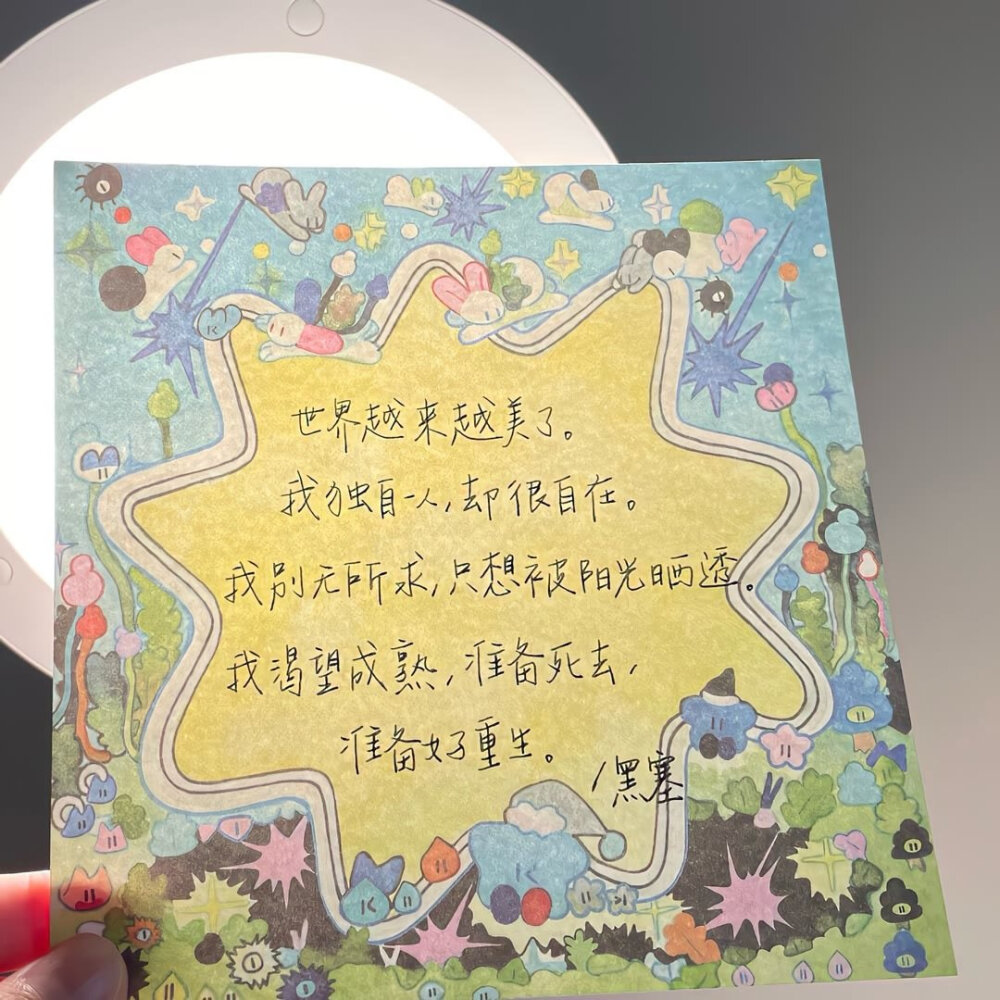 世界越来越美了。
我独自一人,却很自在。
我别无所求,只想被阳光晒透。
我渴望成熟,准备死去,
准备好重生。
/黑塞